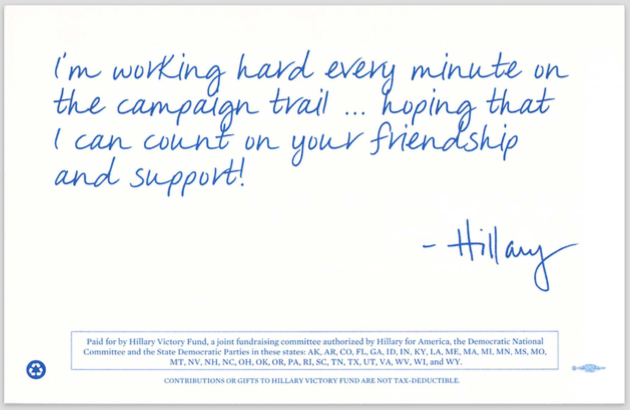 I'm working hard every minute on
the campaign trail ... hoping that
I can count on your friendship
and support!
- Hillary
Paid for by Hillary Victory Fund, a joint fundraising committee authorized by Hillary for America, the Democratic National
Committee and the State Democratic Parties in these states: AK, AR, CO, FL, GA, ID, IN, KY, LA, ME, MA, MI, MN, MS, MO,
MT, NV, NH, NC, OH, OK, OR, PA, RI, SC, TN, TX, UT, VA, WV, WI, and WY.
CONTRIBUTIONS OR GIFTS TO HILLARY VICTORY FUND ARE NOT TAX-DEDUCTIBLE.